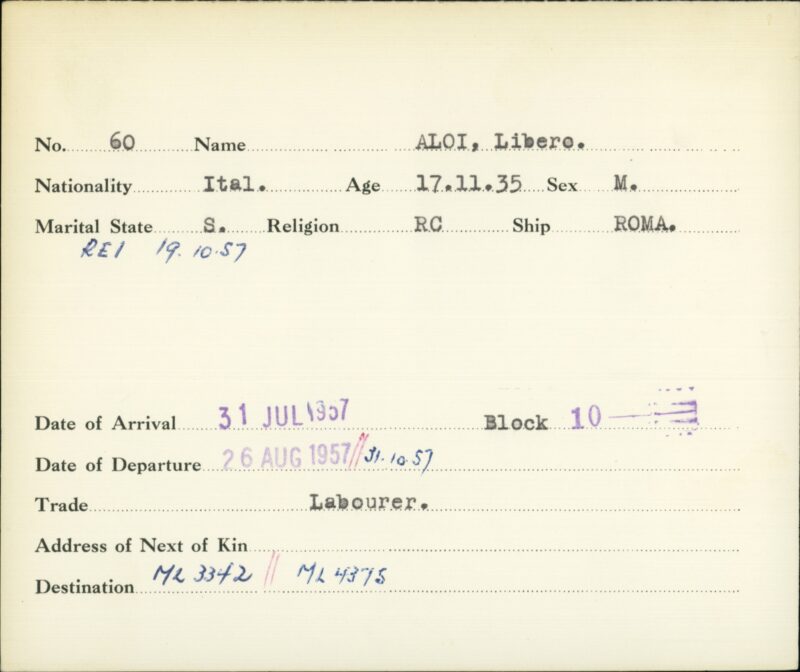 No. 60 Name ALOI, Libero.
Nationality Ital. Age 17.11.35 Sex M.
Marital State S. Religion RC Ship ROMA.
REI 19.10.57
Date of Arrival 31 JUL 1957 Block 10
Date of Departure 26 AUG 1957 // 31.10.57
Trade Labourer.
Address of Next of Kin
Destination ML 3342 // ML 4375